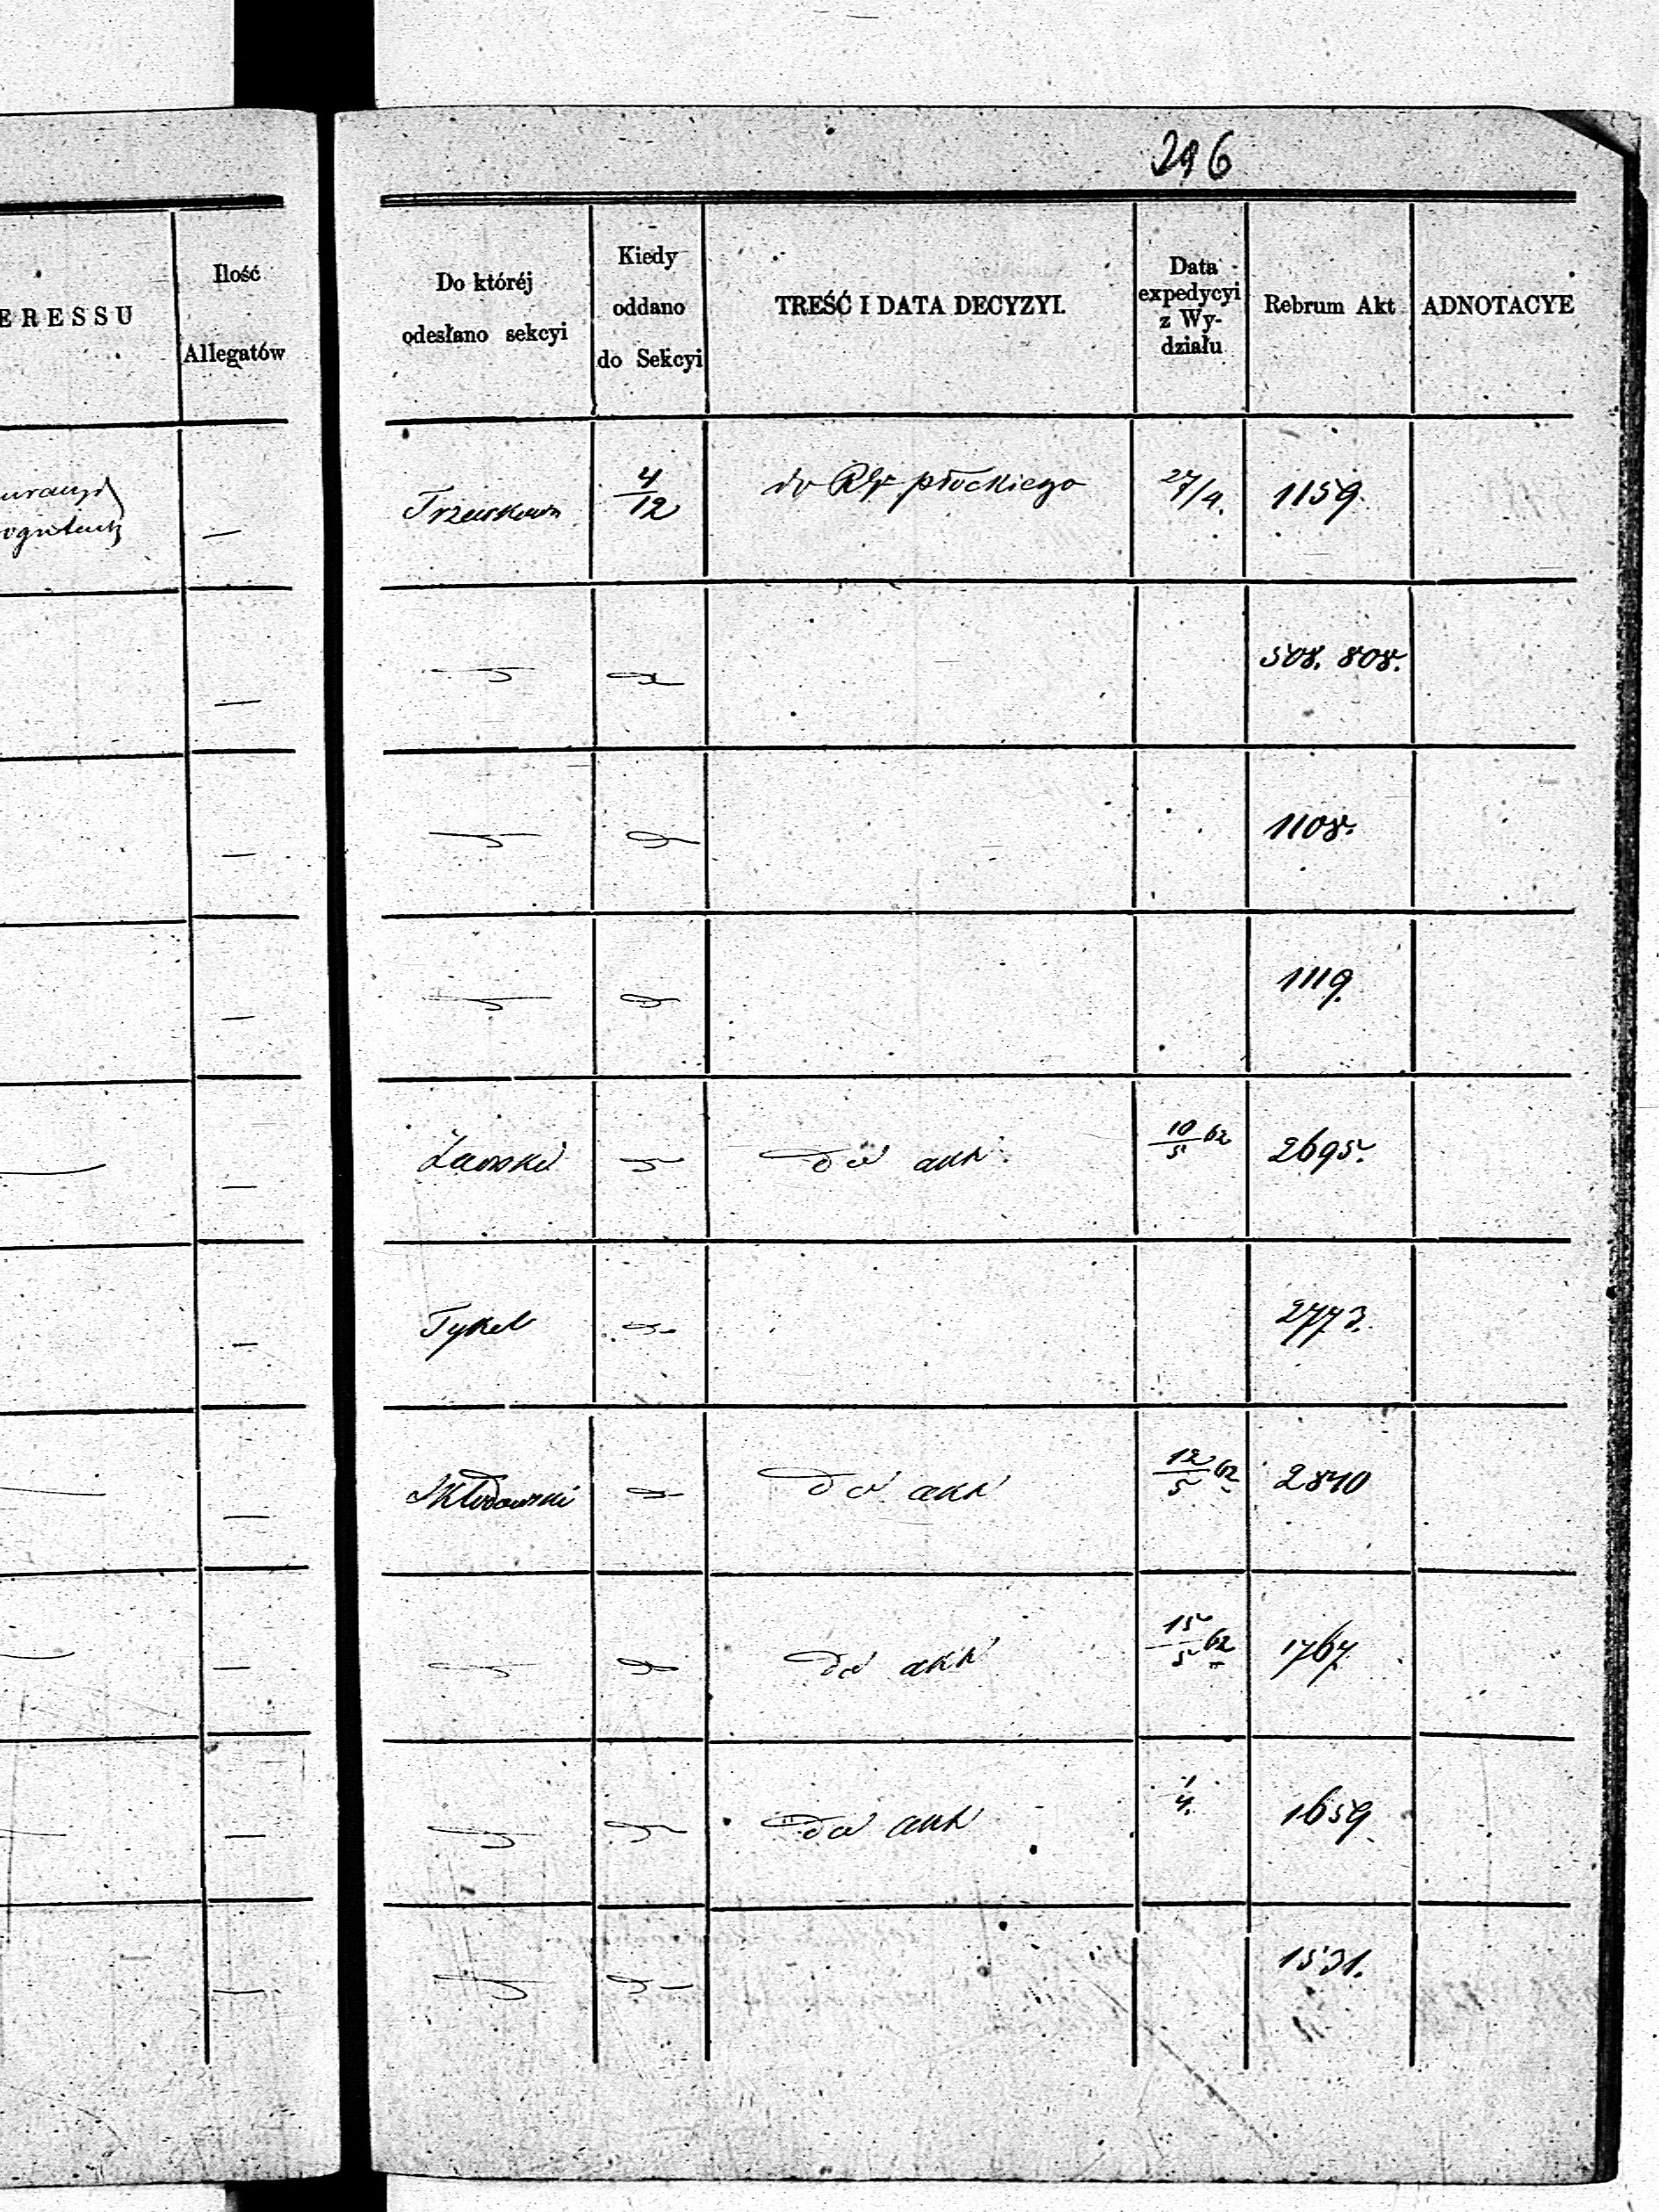 296
ERESSU
Ilość
Allegatów
Do któréj
odesłano sekcyi
Kiedy
oddano
do Sekcyi
TREŚĆ I DATA DECYZYI.
Data
expedycyi
z Wy-
działu
Rebrum Akt
ADNOTACYE
4/12
do płockiego
27/4.
1159.
508. 808.
1108.
1119.
do akt
10/5 62
2695.
Tykel
2773.
Skłodowski
do akt
12/5 62
2840
do akt
15/5 62
1767.
do akt
1/4.
1659
1531.